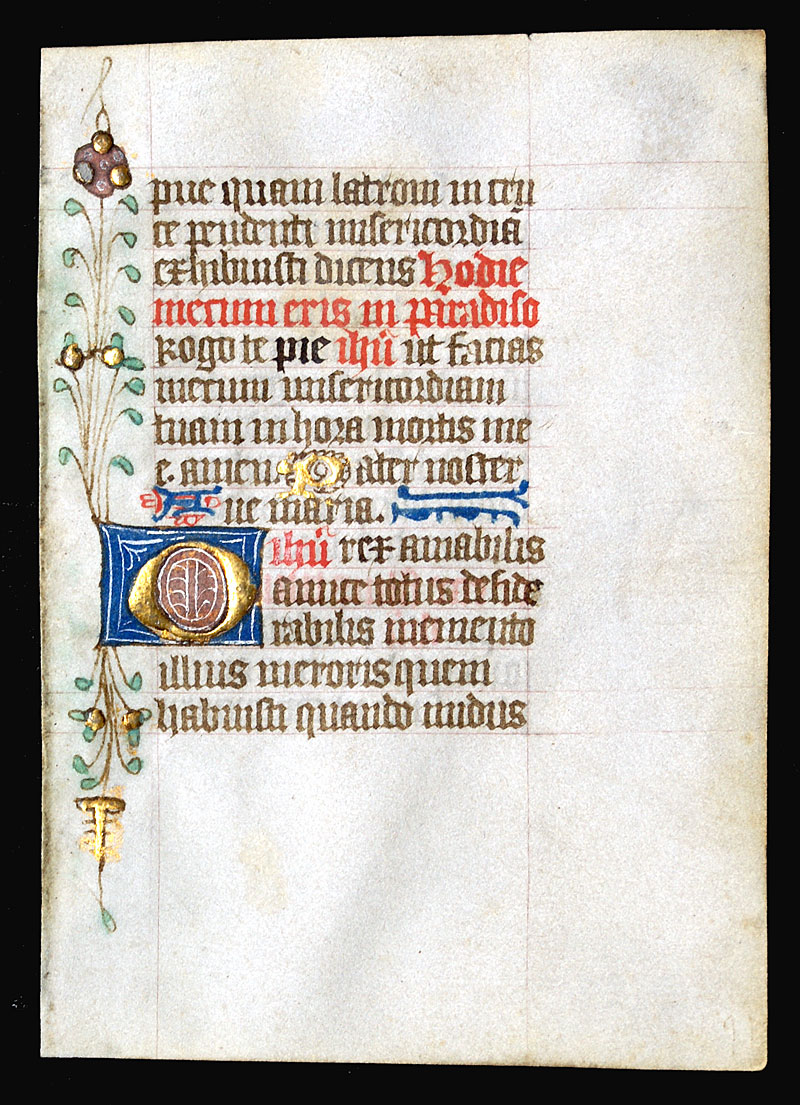 pne quam latroni in cru
ce pendenti misericordiā
exhibuisti dicens Hodie
mecum eris in paradiso
Rogo te pie ihū ut facias
mecum misericordiam
tuam in hora mortis me
e. amen. Pater noster
Aue maria.
O ihū rex amabilis
amice totus deside
rabilis memento
illius meroris quem
habuisti quando nudus